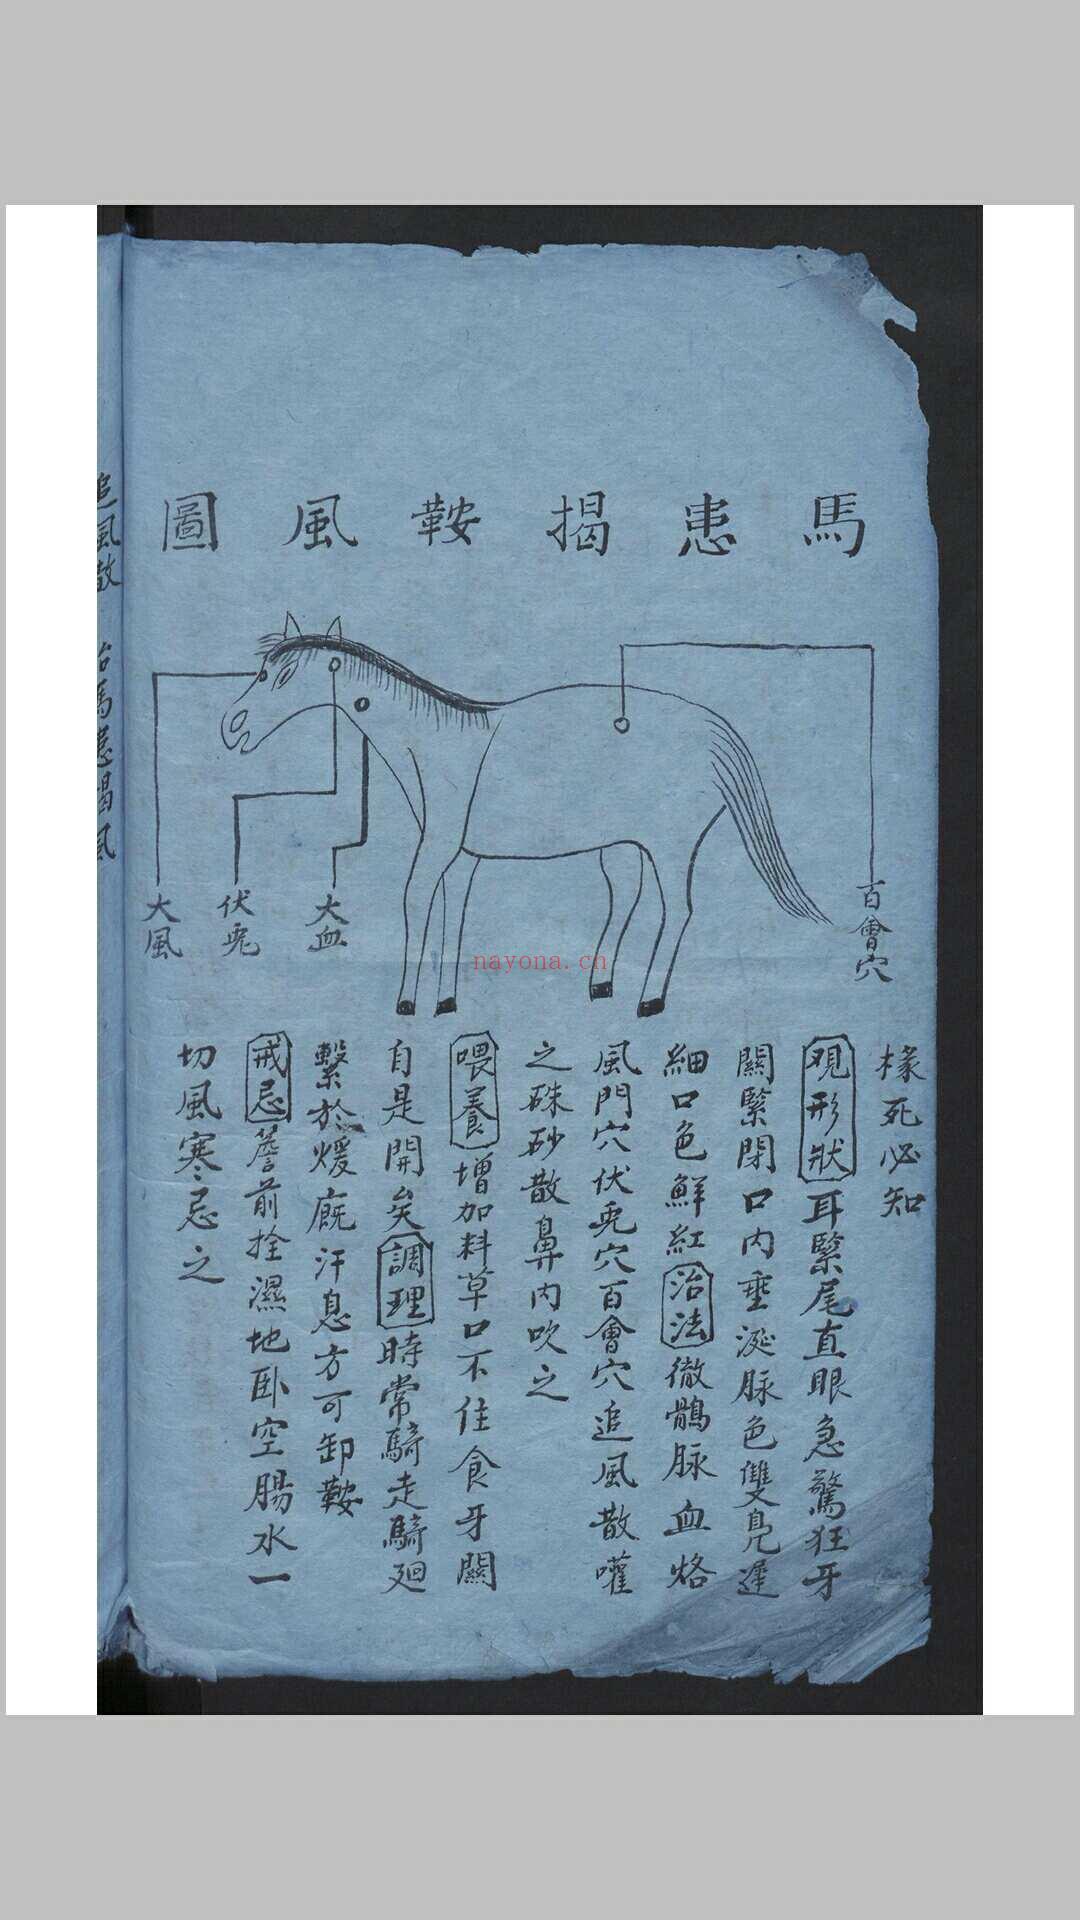 馬患揭鞍風圖
百會穴
大血
伏兎
大風
nayona.cn
椽死必知
觀形狀耳緊尾直眼急驚狂牙
關緊閉口内垂涎脉色雙鳧遲
細口色鮮紅治法徹鶻脉血烙
風門穴伏兎穴百會穴追風散嚾
之硃砂散鼻内吹之
喂養增加料草口不住食牙關
自是開矣調理時常騎走騎廻
繫於煖廐汗息方可卸鞍
戒忌簷前拴濕地臥空腸水一
切風寒忌之
追風散 治馬患揭風